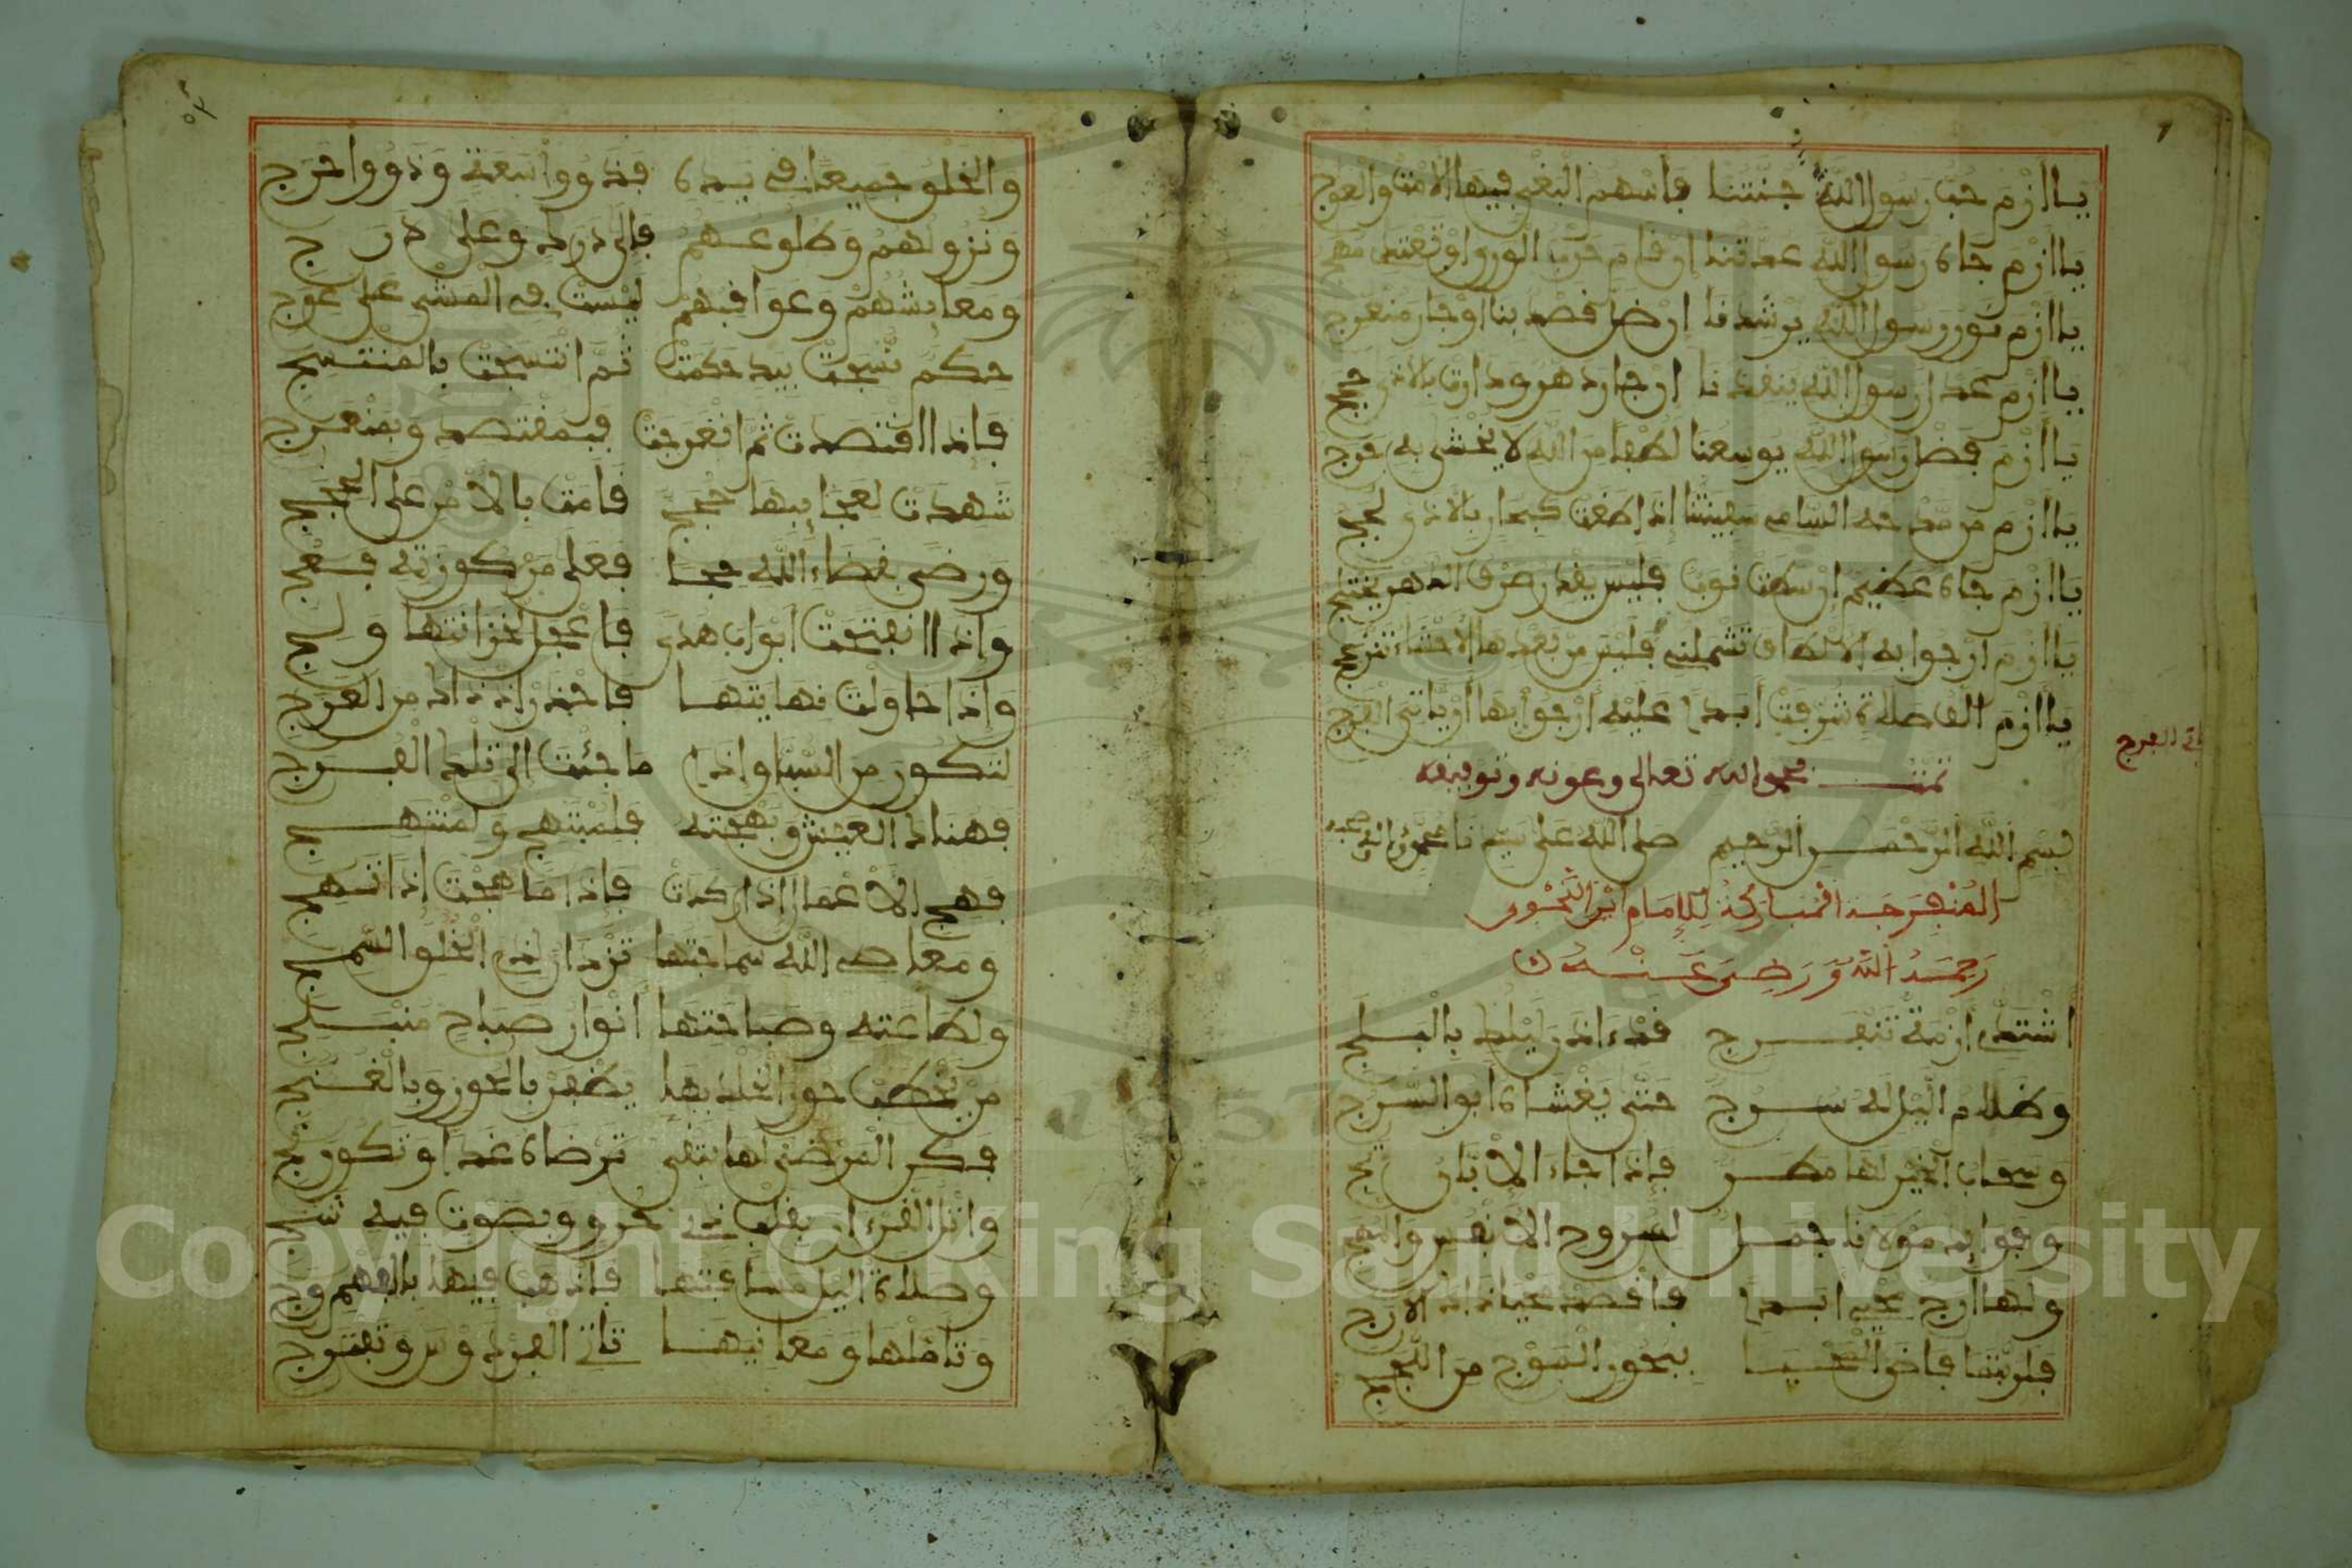 يا أزم حب رسول الله جنتنا فأسهم البغي فيها الأمت والعوج
يا أزم جاه رسول الله عمدتنا إن قام حرب الورى أو تعتلي مهج
يا أزم نور رسول الله يرشدنا إن ضل قصد بنا أو جار منعرج
يا أزم عدل رسول الله ينقذنا إن جار دهر ودارت بالأذى حجج
يا أزم فضل رسول الله يوسعنا لطفا من الله لا يخشى به حرج
يا أزم من مدحه السامي سفينتنا إذا طغت كبحار بالأذى لجج
يا أزم جاه عظيم إن سطت نوب فليس يقدر صرف الدهر يختلج
يا أزم أرجو به الألطاف تشملني فليس من بعدها الأحشاء تنزعج
يا أزم ألف صلاة شرفت أبدا عليه أرجو بها أن يأتي الفرج
تمت بحمد الله تعالى وعونه وتوفيقه
بسم الله الرحمن الرحيم صلى الله على سيدنا محمد وآله وصحبه
المنفرجة المباركة للإمام ابن النحوي
رحمه الله ورضي عنه
اشتدي أزمة تنفرج قد آذن ليلك بالبلج
وظلام الليل له سرج حتى يغشاه أبو السرج
وسحاب الخير لها مطر فإذا جاء الإبان تج
وفوائد مولانا جمل لسروح الأنفس والمهج
ولها أرج محي أبدا فاقصد محيا ذاك الأرج
فلربتما فاض المحيا ببحور الموج من اللجج
والخلق جميعا في يده فذوو سعة وذوو حرج
ونزولهم وطلوعهم فإلى درك وعلى درج
ومعايشهم وعواقبهم ليست في المشي على عوج
حكم نسجت بيد حكمت ثم انتسجت بالمنتسج
فإذا اقتصدت ثم انعرجت فبمقتصد وبمنعرج
شهدت لعجائبها حجج قامت بالأمر على الحجج
ورضى بقضاء الله حجا فعلى مركوزته فعج
وإذا انفتحت أبواب هدى فاعجل لخزائنها ولج
وإذا حاولت نهايتها فاحذر إذ ذاك من العرج
لتكون من السباق إذا ما جئت إلى تلك الفرج
فهناك العيش وبهجته فلمبتهج ولمنتهج
فهج الأعمال إذا ركدت فإذا ما هجت إذا تهج
ومعاصي الله سماجتها تزدان لذي الخلق السمج
ولطاعته وصباحتها أنوار صباح منبلج
من يخطب حور الخلد بها يظفر بالحور وبالغنج
فكن المرضي لها بتقى ترضاه غدا وتكون نج
واتل القرآن بقلب ذي حرق وبصوت فيه شج
وصلاة الليل مسافتها فاذهب فيها بالفهم وج
وتأملها ومعانيها تأت الفردوس وتفترج